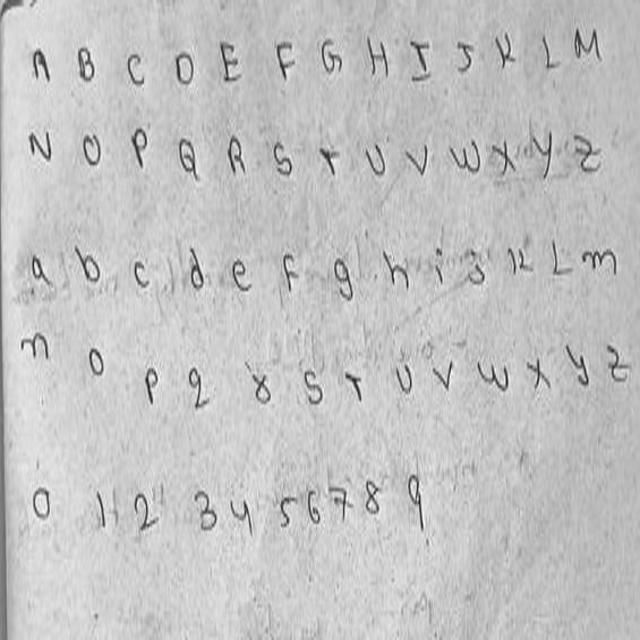 A B C D E F G H I J K L M
N O P Q R S T U V W X Y Z
a b c d e f g h i j k L m
n o p q r s t u v w x y z
0 1 2 3 4 5 6 7 8 9